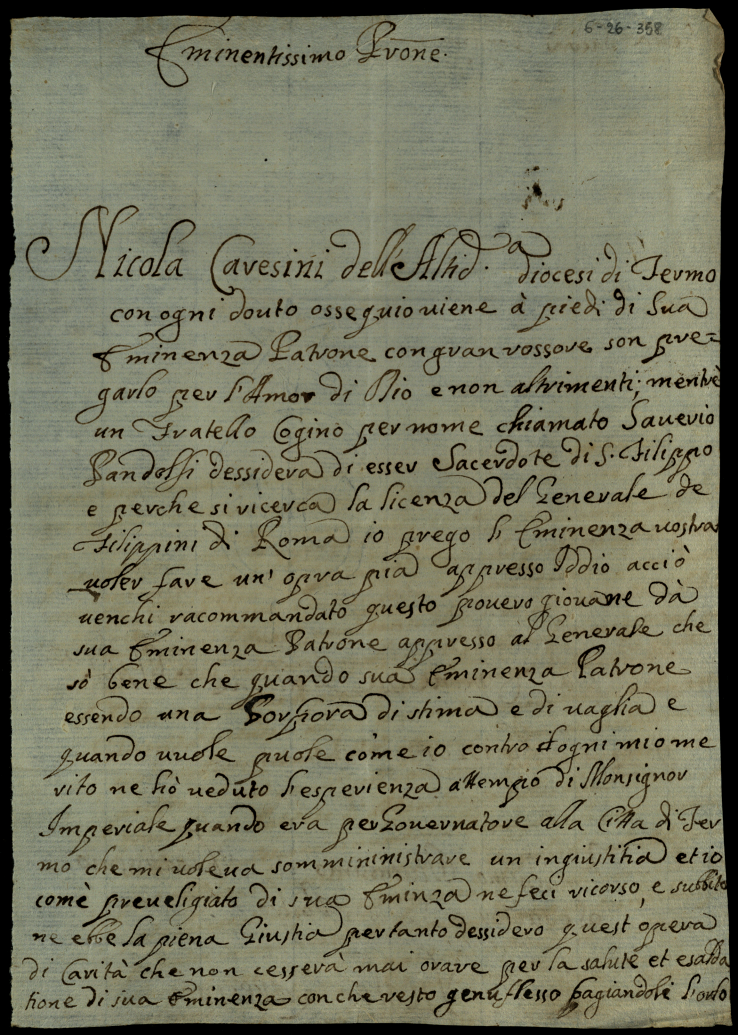 6-26-358
Eminentissimo Prone.
Nicola Cavesini dell'Altid.a diocesi di Fermo
con ogni douto ossequio viene à piedi di Sua
Eminenza Patrone con gran rossore son pre=
garlo per l'Amor di Dio e non altrimenti; mentre
un Fratello Cogino per nome chiamato Saverio
Pandolfi dessidera di esser Sacerdote di S. Filippo
e perche si ricerca la licenza del Generale de
Filippini di Roma io prego l'Eminenza vostra
voler fare un' opra pia appresso Iddio acciò
venchi racommandato questo povero giovane dà
sua Eminenza Patrone appresso al Generale che
sò bene che quando sua Eminenza Patrone
essendo una Porpora di stima e di vaglia e
quando vuole puole come io contro d'ogni mio me
rito ne hò veduto l'esperienza a tempio di Monsignor
Imperiale quando era per Governatore alla Citta di Fer
mo che mi voleva sommininistrare un ingiustitia et io
comè preveligiato di sua Eminza ne feci ricorso, e subbito
ne ebbe la piena Giustia per tanto dessidero quest opera
di Carità che non cesserà mai orare per la salute et esalta
tione di sua Eminenza con che resto genuflesso bagiandole l'orlo